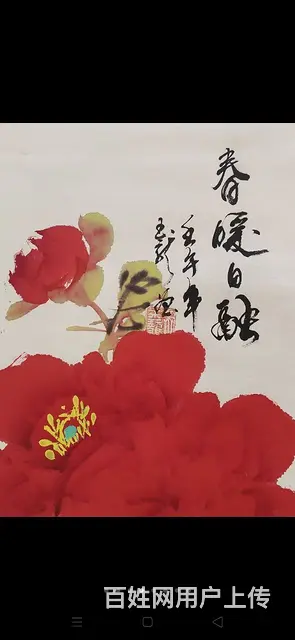 春暖日融
壬午年
百姓网用户上传